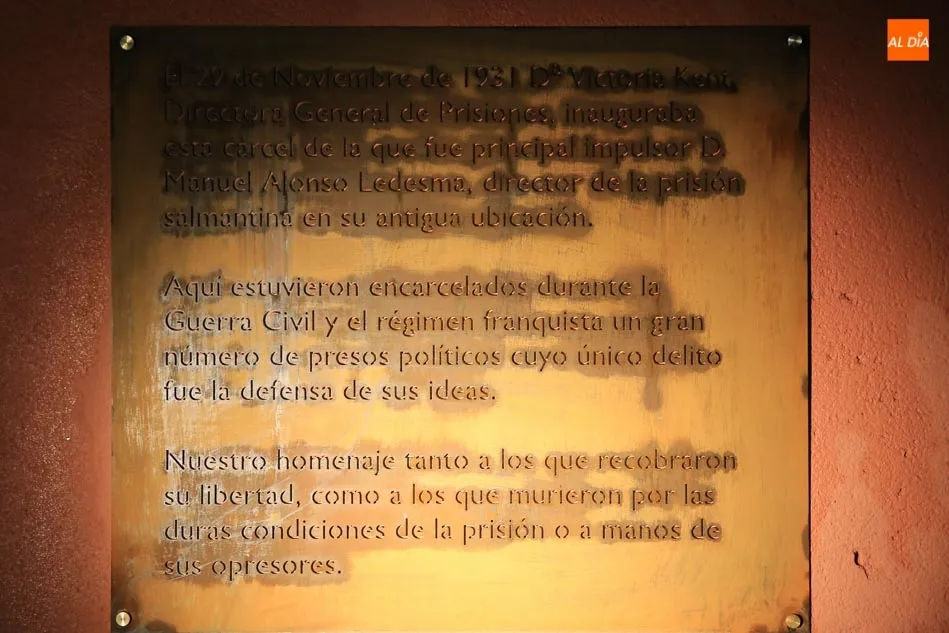 El 29 de Noviembre de 1931 Dª Victoria Kent,
Directora General de Prisiones, inauguraba
esta cárcel de la que fue principal impulsor D.
Manuel Alonso Ledesma, director de la prisión
salmantina en su antigua ubicación.
Aquí estuvieron encarcelados durante la
Guerra Civil y el régimen franquista un gran
número de presos políticos cuyo único delito
fue la defensa de sus ideas.
Nuestro homenaje tanto a los que recobraron
su libertad, como a los que murieron por las
duras condiciones de la prisión o a manos de
sus opresores.
AL DÍA